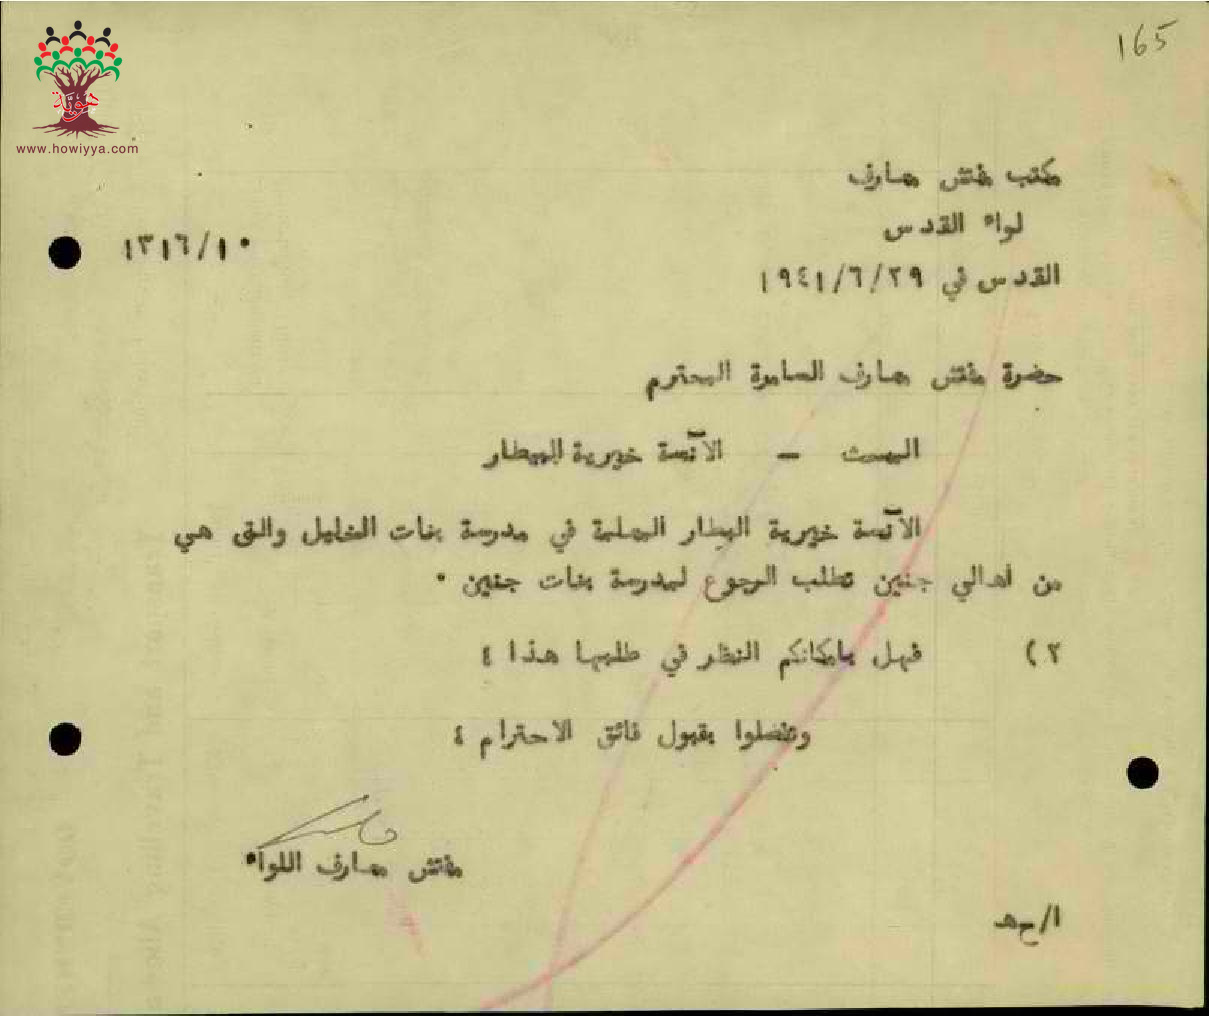 165
هوية
www.howiyya.com
مكتب مفتش معارف
لواء القدس
١٣١٦/١٠
القدس في ١٩٤١/٦/٢٩
حضرة مفتش معارف السامرة المحترم
البحث - الآنسة خيرية البيطار
الآنسة خيرية البيطار المعلمة في مدرسة بنات الخليل والتى هي
من اهالي جنين تطلب الرجوع لمدرسة بنات جنين ٠
٢) فهل بامكانكم النظر في طلبها هذا ؟
وتفضلوا بقبول فائق الاحترام ؛
مفتش معارف اللواء
ا/حـ هـ